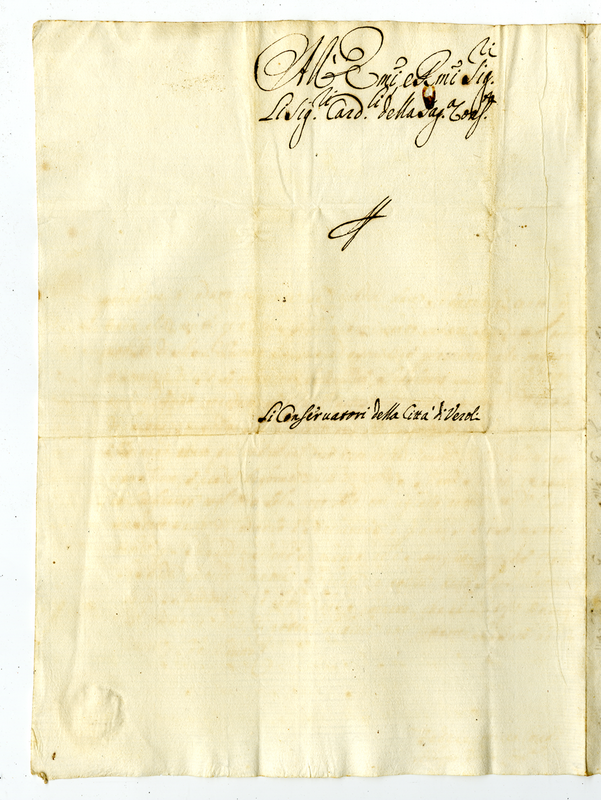 All' Emi e Rmi Sig.ri
Li Sig.li Card.li della Sag.a Cons.ta
Li Conservatori della Città di Verol.